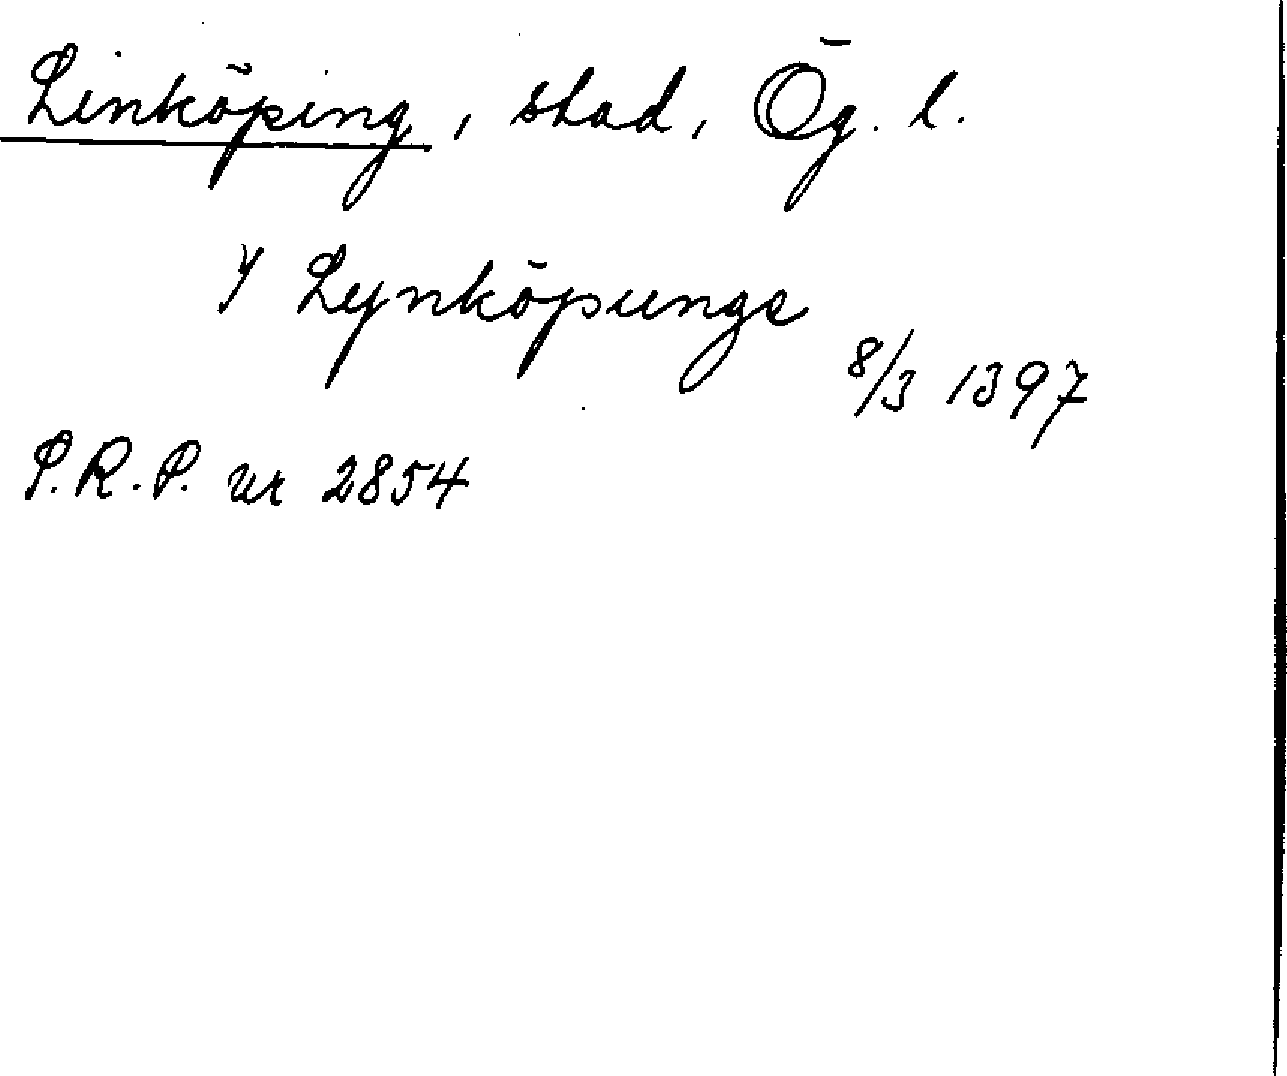 Linköping, stad, Ög. l.
y Lynköpunge
8/3 1397
S.R.P. nr 2854